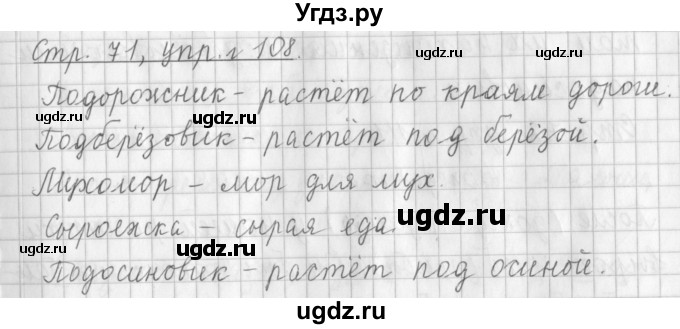 Угдз.ру
Стр. 71, упр. 108.
ugdz.ru
Подорожник - растёт по краям дороги.
ugdz.ru ugdz.ru
Подберёзовик - растёт под берёзой.
ugdz.ru ugdz.ru
Мухомор - мор для мух.
ugdz.ru
Сыроежка - сырая еда.
ugdz.ru ugdz.ru
Подосиновик - растёт под осиной.
ugdz.ru
ugdz.ru